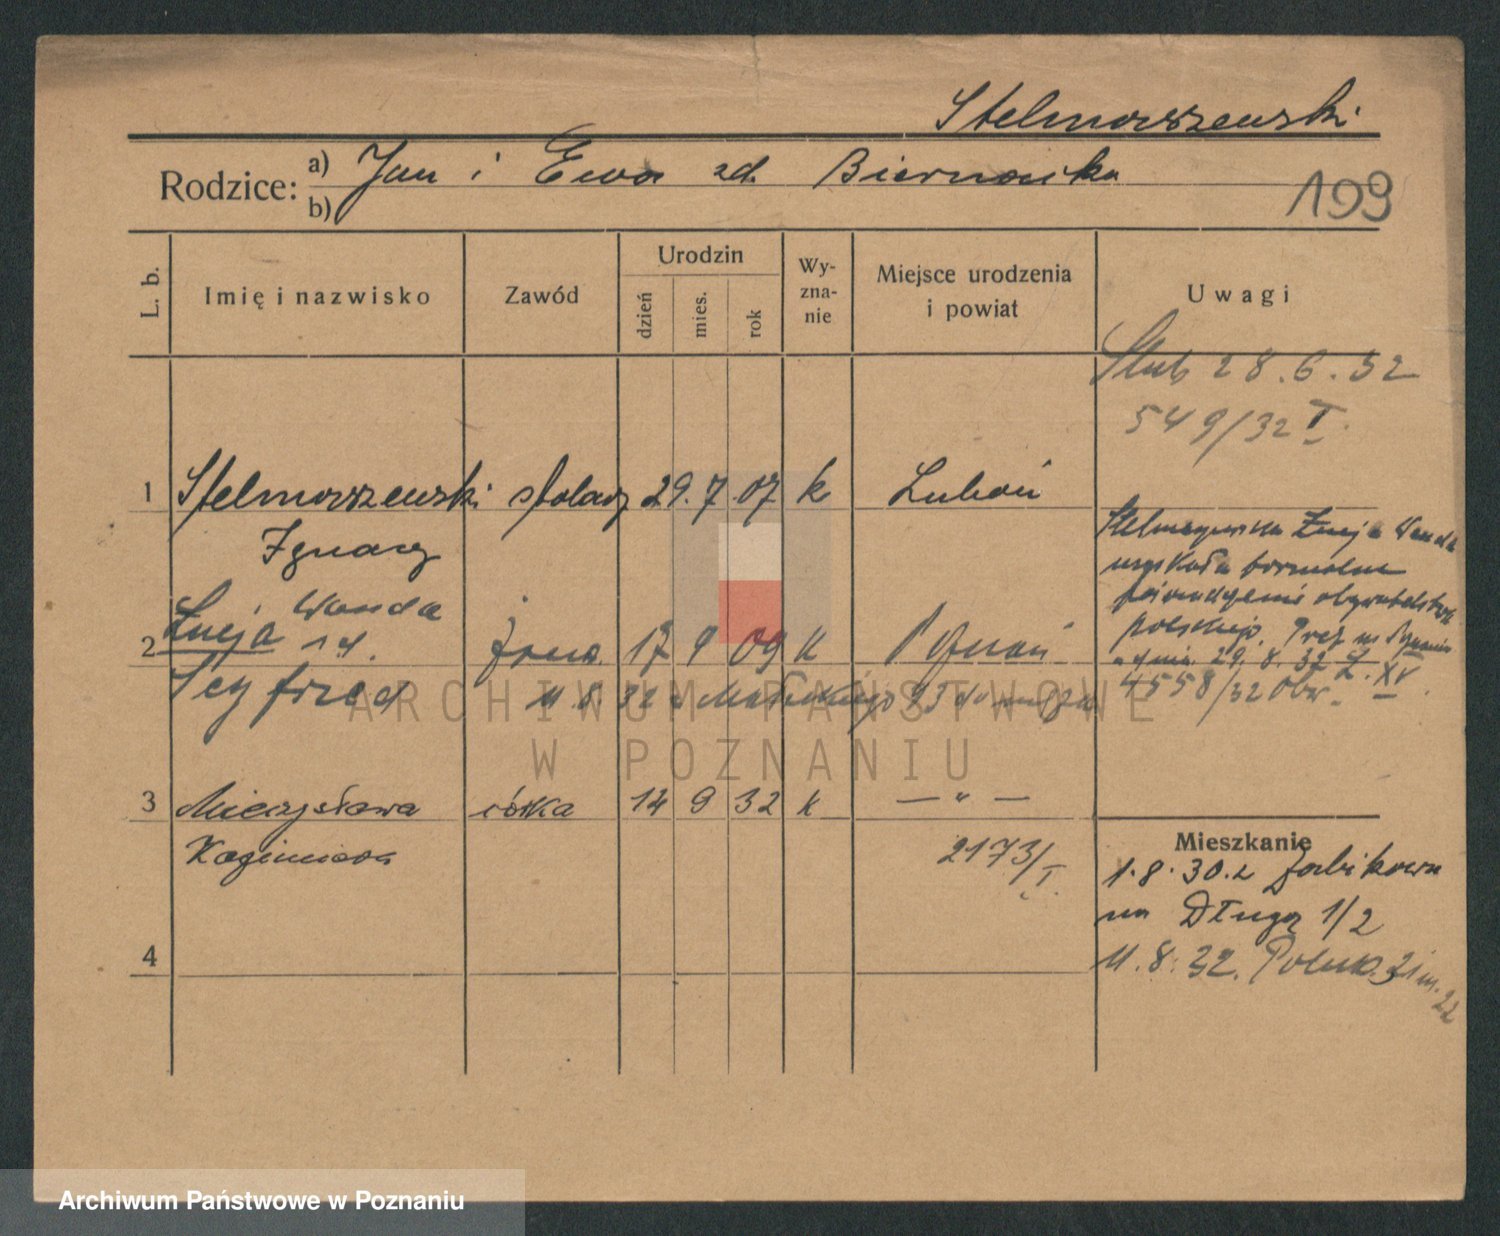 Stelmaszewski
Rodzice: a) Jan i Ewa zd. Biernacka
b)
199
L. b.
Imię i nazwisko
Zawód
Urodzin
dzień
mies.
rok
Wy-
zna-
nie
Miejsce urodzenia
i powiat
Uwagi
Ślub 28.6.32
549/32 I.
1 Stelmaszewski stolarz 29. 7 07 k Luboń
Ignacy
Stelmaszewska Łucja Wanda
uzyskała formalne
poświadczenie obywatelstwa
polskiego.
dnia 29.8.32 L. XV
4558/32 Obw.
Wanda
2 Łucja r d. żona 17 9 09 k Poznań
Seyfried 11.8.32 z
3 Mieczysława córka 14 9 32 k — „ —
Kazimiera 2173/I.
Mieszkanie
1.8.30. z Żabikowa
na Długą 1/2
11.8.32. 21 m. 22
4
ARCHIWUM PAŃSTWOWE
W POZNANIU
Archiwum Państwowe w Poznaniu